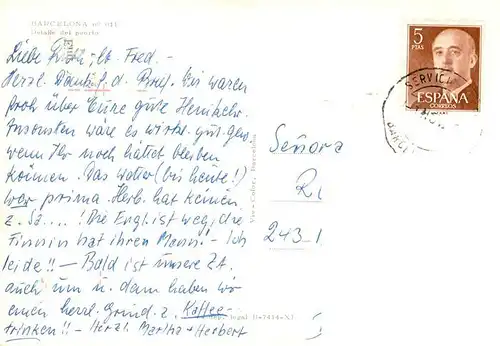 BARCELONA nº 841
Detalle del puerto
Liebe , lb. Fred. -
Herzl. Dank f. d. Brief. Wir waren
froh über Eure gute Heimkehr.
Ansonsten wäre es wirkl. gut gew.
wenn Ihr noch hättet bleiben
können. Das Wetter (bis heute!)
war prima. Herb. hat keinen
z. ! Die Engl. ist weg, die
Finnin hat ihren Mann! - Ich
leide!! - Bald ist unsere Zt.
auch um u. dann haben wir
einen herrl. Grund z. Kaffee-
trinken!! - Herzl. Martha + Herbert
Dep. legal B-7414-XI
Barcelona
Señora
R
243
5
PTAS
ESPAÑA
CORREOS
SERVICI
BARC